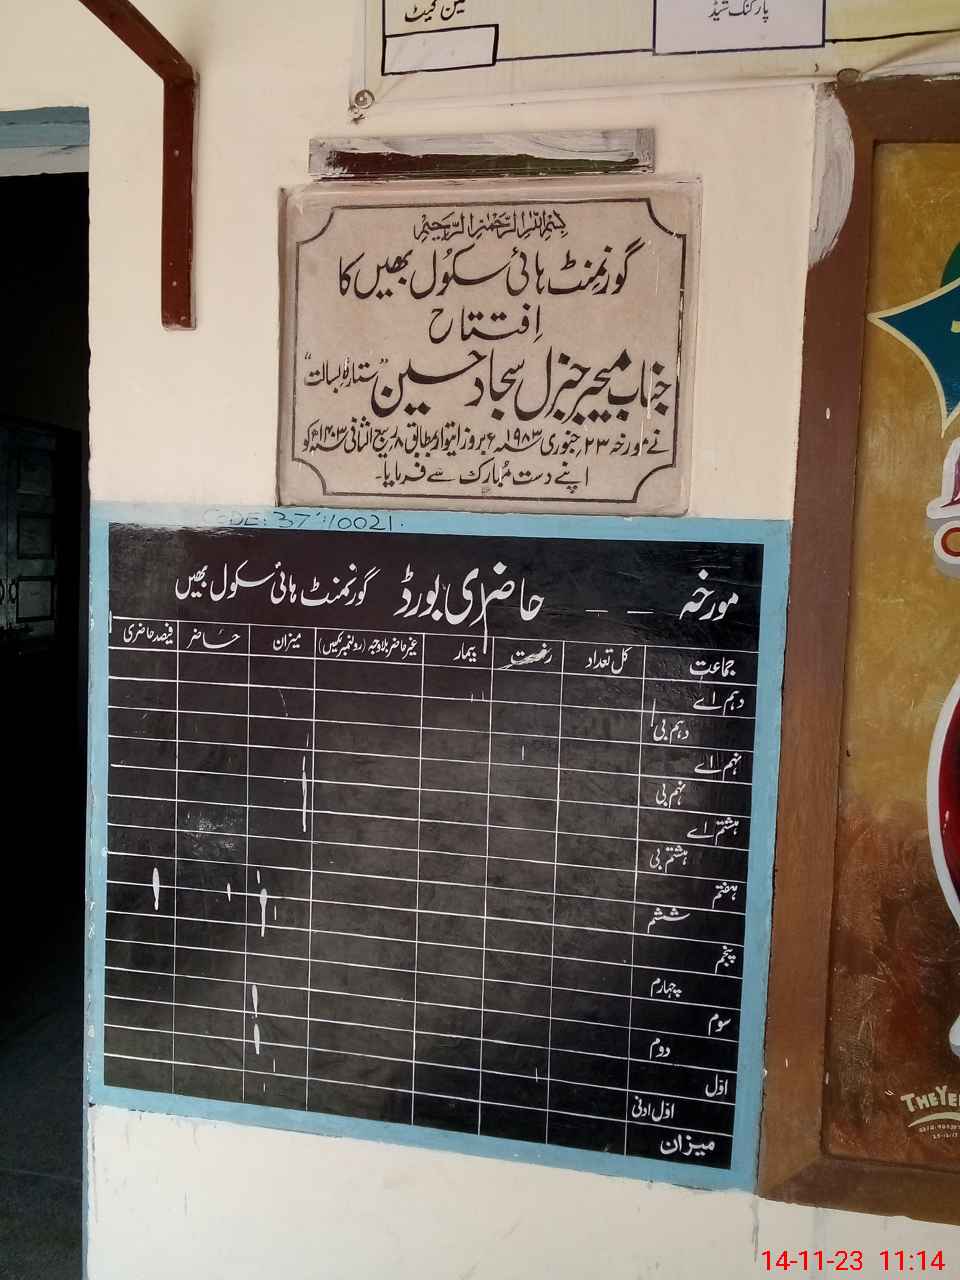 مین گیٹ
پارکنگ شیڈ
بسم اللہ الرحمٰن الرحیم
گورنمنٹ ہائی سکول بھیں کا
افتتاح
جناب میجر جنرل سجاد حسین "ستارہ بسالت"
نے مورخہ ۲۳؍ جنوری ۱۹۸۳ء بروز اتوار بمطابق ۸؍ ربیع الثانی ۱۴۰۳ھ کو
اپنے دست مبارک سے فرمایا۔
CODE: 37 10021.
مورخہ _ _ حاضری بورڈ گورنمنٹ ہائی سکول بھیں
جماعت کل تعداد رخصت بیمار غیر حاضر بلاوجہ (رولنمبر لکھیں) میزان حاضر فیصد حاضری
دہم اے
دہم بی
نہم اے
نہم بی
ہشتم اے
ہشتم بی
ہفتم
ششم
پنجم
چہارم
سوم
دوم
اوّل
اوّل ادنیٰ
میزان
"THE YE
14-11-23 11:14